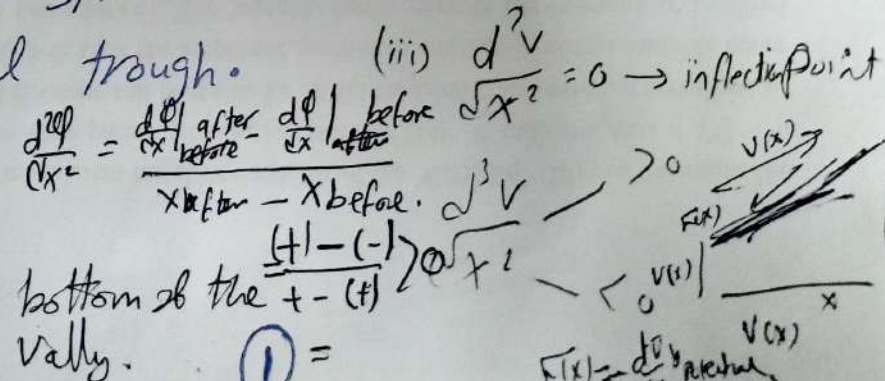 l trough.
(iii) d²v/dx² = 0 → inflection Point
d²φ/dx² = dφ/dx | after before - dφ/dx | before after
x after - x before.
d³v/dx² > 0
< 0
V(x)
F(x)
V(x)
x
bottom of the (+) - (-) / + - (+) > 0
Vally. ① =
V(x)
F(x) = - dv